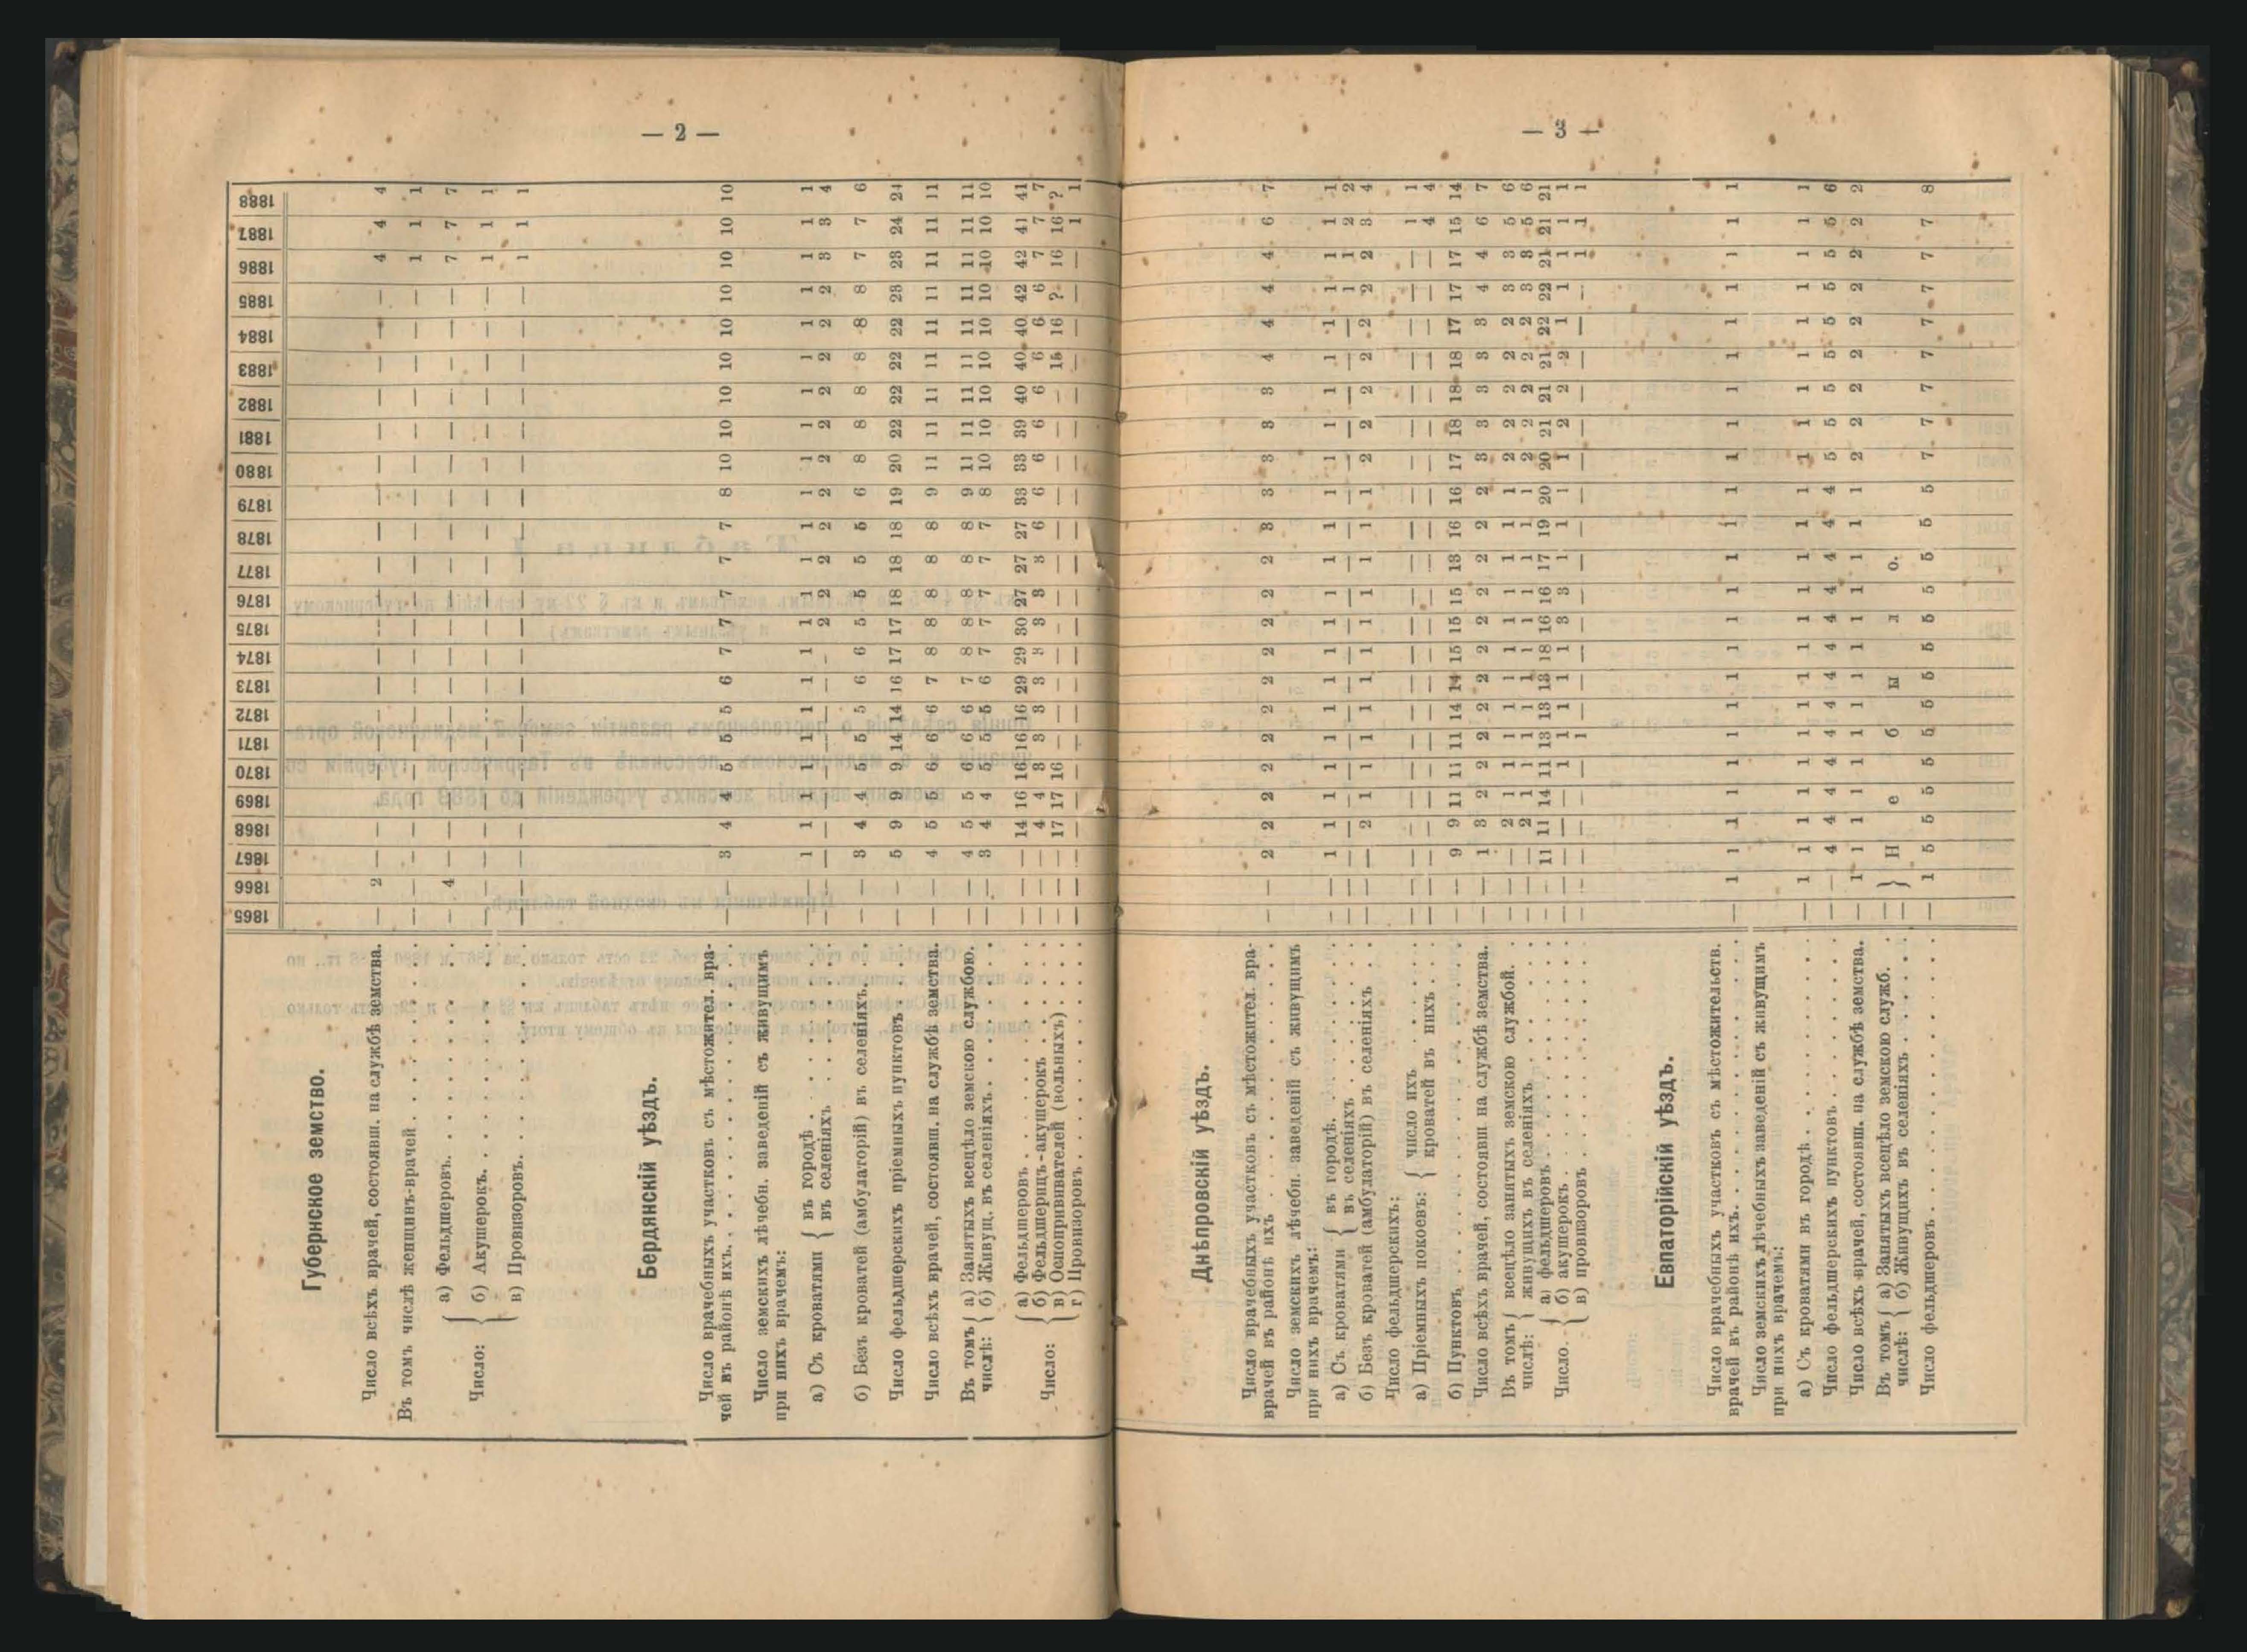 — 2 —
1865 1866 1867 1868 1869 1870 1871 1872 1873 1874 1875 1876 1877 1878 1879 1880 1881 1882 1883 1884 1885 1886 1887 1888
Губернское земство.
Число всѣхъ врачей, состоявш. на службѣ земства. — 2 — — — — — — — — — — — — — — — — — — — 4 4 4
Въ томъ числѣ женщинъ-врачей . . . — — — — — — — — — — — — — — — — — — — — — 1 1 1
Число: { а) Фельдшеровъ. . . . — 4 — — — — — — — — — — — — — — — — — — — 7 7 7
б) Акушерокъ. . . . — — — — — — — — — — — — — — — — — — — — — 1 1 1
в) Провизоровъ. . . . — — — — — — — — — — — — — — — — — — — — — 1 1 1
Бердянскій уѣздъ.
Число врачебныхъ участковъ съ мѣстожител. вра-
чей въ районѣ ихъ. . . . — — 3 4 4 5 5 5 6 7 7 7 7 7 8 10 10 10 10 10 10 10 10 10
Число земскихъ лѣчебн. заведеній съ живущимъ
при нихъ врачемъ:
а) Съ кроватями { въ городѣ. . . . — — 1 1 1 1 1 1 1 1 1 1 1 1 1 1 1 1 1 1 1 1 1 1
въ селеніяхъ . . . — — — — — — — — — — 2 2 2 2 2 2 2 2 2 2 2 3 3 4
б) Безъ кроватей (амбулаторій) въ селеніяхъ. . — — 3 4 4 5 5 5 6 6 5 5 5 5 6 8 8 8 8 8 8 7 7 6
Число фельдшерскихъ пріемныхъ пунктовъ . . — — 5 9 9 9 14 14 16 17 17 18 18 18 19 20 22 22 22 22 23 23 24 24
Число всѣхъ врачей, состоявш. на службѣ земства. — — 4 5 5 6 6 6 7 8 8 8 8 8 9 11 11 11 11 11 11 11 11 11
Въ томъ { а) Занятыхъ всецѣло земскою службою. — — 4 5 5 6 6 6 7 8 8 8 8 8 9 11 11 11 11 11 11 11 11 11
числѣ: б) Живущ. въ селеніяхъ. . . . — — 3 4 4 5 5 5 6 7 7 7 7 7 8 10 10 10 10 10 10 10 10 10
Число: { а) Фельдшеровъ . . . . — — — 14 16 16 16 16 29 29 30 27 27 27 33 33 39 40 40 40 42 42 41 41
б) Фельдшерицъ-акушерокъ . . . — — — 4 4 3 3 3 3 3 3 3 3 6 6 6 6 6 6 6 6 7 7 7
в) Оспопрививателей (вольныхъ) . . . — — — 17 17 16 — — — — — — — — — — — — 15 16 ? 16 16 ?
г) Провизоровъ . . . . — — — — — — — — — — — — — — — — — — — — — — 1 1
— 3 —
Днѣпровскій уѣздъ.
Число врачебныхъ участковъ съ мѣстожител. вра-
врачей въ районѣ ихъ . . . . — — 2 2 2 2 2 2 2 2 2 2 2 3 3 3 3 3 4 4 4 4 6 7
Число земскихъ лѣчебн. заведеній съ живущимъ
при нихъ врачемъ:
а) Съ кроватями { въ городѣ. . . . — — 1 1 1 1 1 1 1 1 1 1 1 1 1 1 1 1 1 1 1 1 1 1
въ селеніяхъ . . . — — — — — — — — — — — — — — — — — — — — 1 1 2 2
б) Безъ кроватей (амбулаторій) въ селеніяхъ . . — — — 2 1 1 1 1 1 1 1 1 1 1 1 2 2 2 2 2 2 2 3 4
Число фельдшерскихъ:
а) Пріемныхъ покоевъ: { число ихъ . . . . — — — — — — — — — — — — — — — — — — — — — — 1 1
кроватей въ нихъ . . . — — — — — — — — — — — — — — — — — — — — — — 4 4
б) Пунктовъ . . . . — — 9 9 11 11 11 14 14 15 15 15 13 16 16 17 18 18 18 17 17 17 15 14
Число всѣхъ врачей, состоявш. на службѣ земства. — — 1 3 2 2 2 2 2 2 2 2 2 2 2 3 3 3 3 3 4 4 6 7
Въ томъ { всецѣло занятыхъ земскою службой. . — — — 2 1 1 1 1 1 1 1 1 1 1 1 2 2 2 2 2 3 3 5 6
числѣ: живущихъ въ селеніяхъ . . . — — — 2 1 1 1 1 1 1 1 1 1 1 1 2 2 2 2 2 3 3 5 6
Число. { а) фельдшеровъ . . . . — — 11 11 14 11 13 13 13 18 16 16 17 19 20 20 21 21 21 22 22 21 21 21
б) акушерокъ. . . . — — — — — 1 1 1 1 1 3 3 1 1 1 1 2 2 2 1 1 1 1 1
в) провизоровъ . . . . — — — — — — 1 — — — — — — — — — — — — — — 1 1 1
Евпаторійскій уѣздъ.
Число врачебныхъ участковъ съ мѣстожительств.
врачей въ районѣ ихъ. . . . — 1 1 1 1 1 1 1 1 1 1 1 1 1 1 1 1 1 1 1 1 1 1 1
Число земскихъ лѣчебныхъ заведеній съ живущимъ
при нихъ врачемъ:
а) Съ кроватями въ городѣ . . . . — 1 1 1 1 1 1 1 1 1 1 1 1 1 1 1 1 1 1 1 1 1 1 1
Число фельдшерскихъ пунктовъ . . . . — — 4 4 4 4 4 4 4 4 4 4 4 4 4 5 5 5 5 5 5 5 5 6
Число всѣхъ врачей, состоявш. на службѣ земства. — 1 1 1 1 1 1 1 1 1 1 1 1 1 1 2 2 2 2 2 2 2 2 2
Въ томъ { а) Занятыхъ всецѣло земскою служб. . — } Н е б ы л о.
числѣ: б) Живущихъ въ селеніяхъ . . . —
Число фельдшеровъ . . . . — 1 5 5 5 5 5 5 5 5 5 5 5 5 5 7 7 7 7 7 7 7 7 8